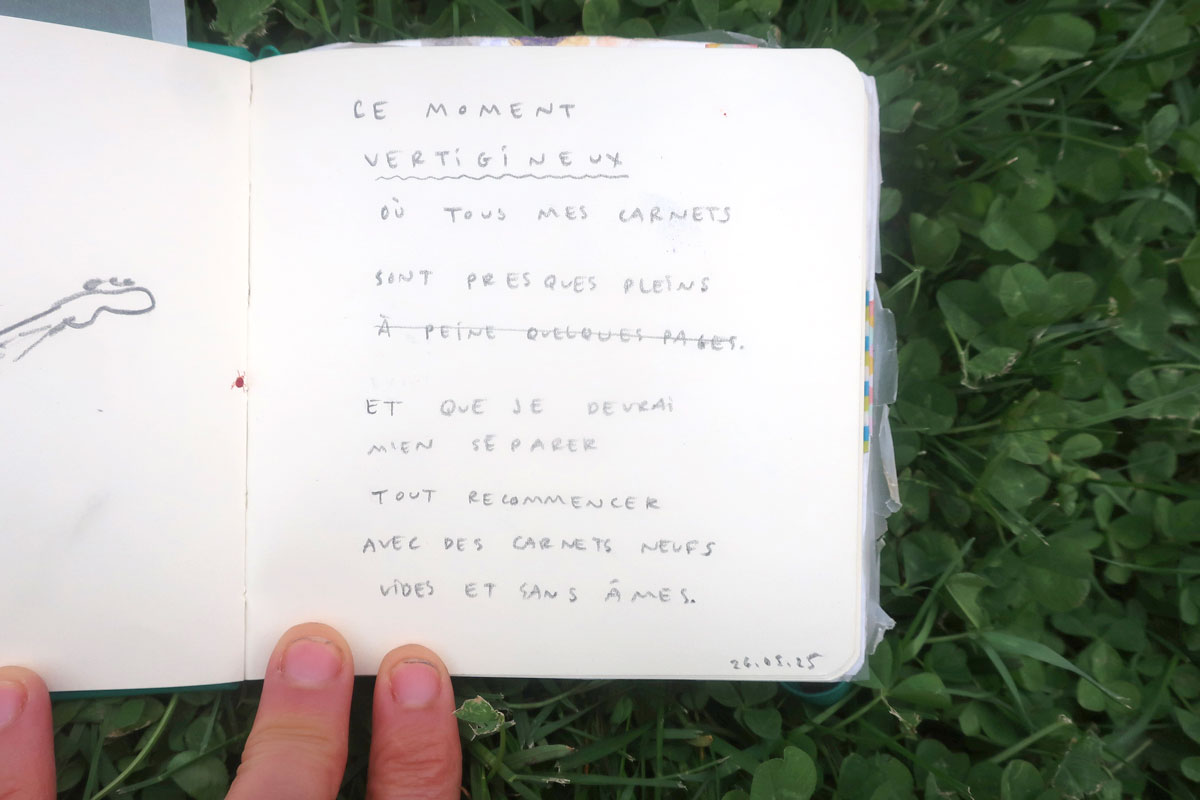 CE MOMENT
VERTiGiNEUX
OÙ TOUS MES CARNETS
SONT PRESQUES PLEiNS
À PEiNE QUELQUES PAGES.
ET QUE JE DEVRAi
M'EN SÉPARER
TOUT RECOMMENCER
AVEC DES CARNETS NEUFS
ViDES ET SANS ÂMES.
26.05.25